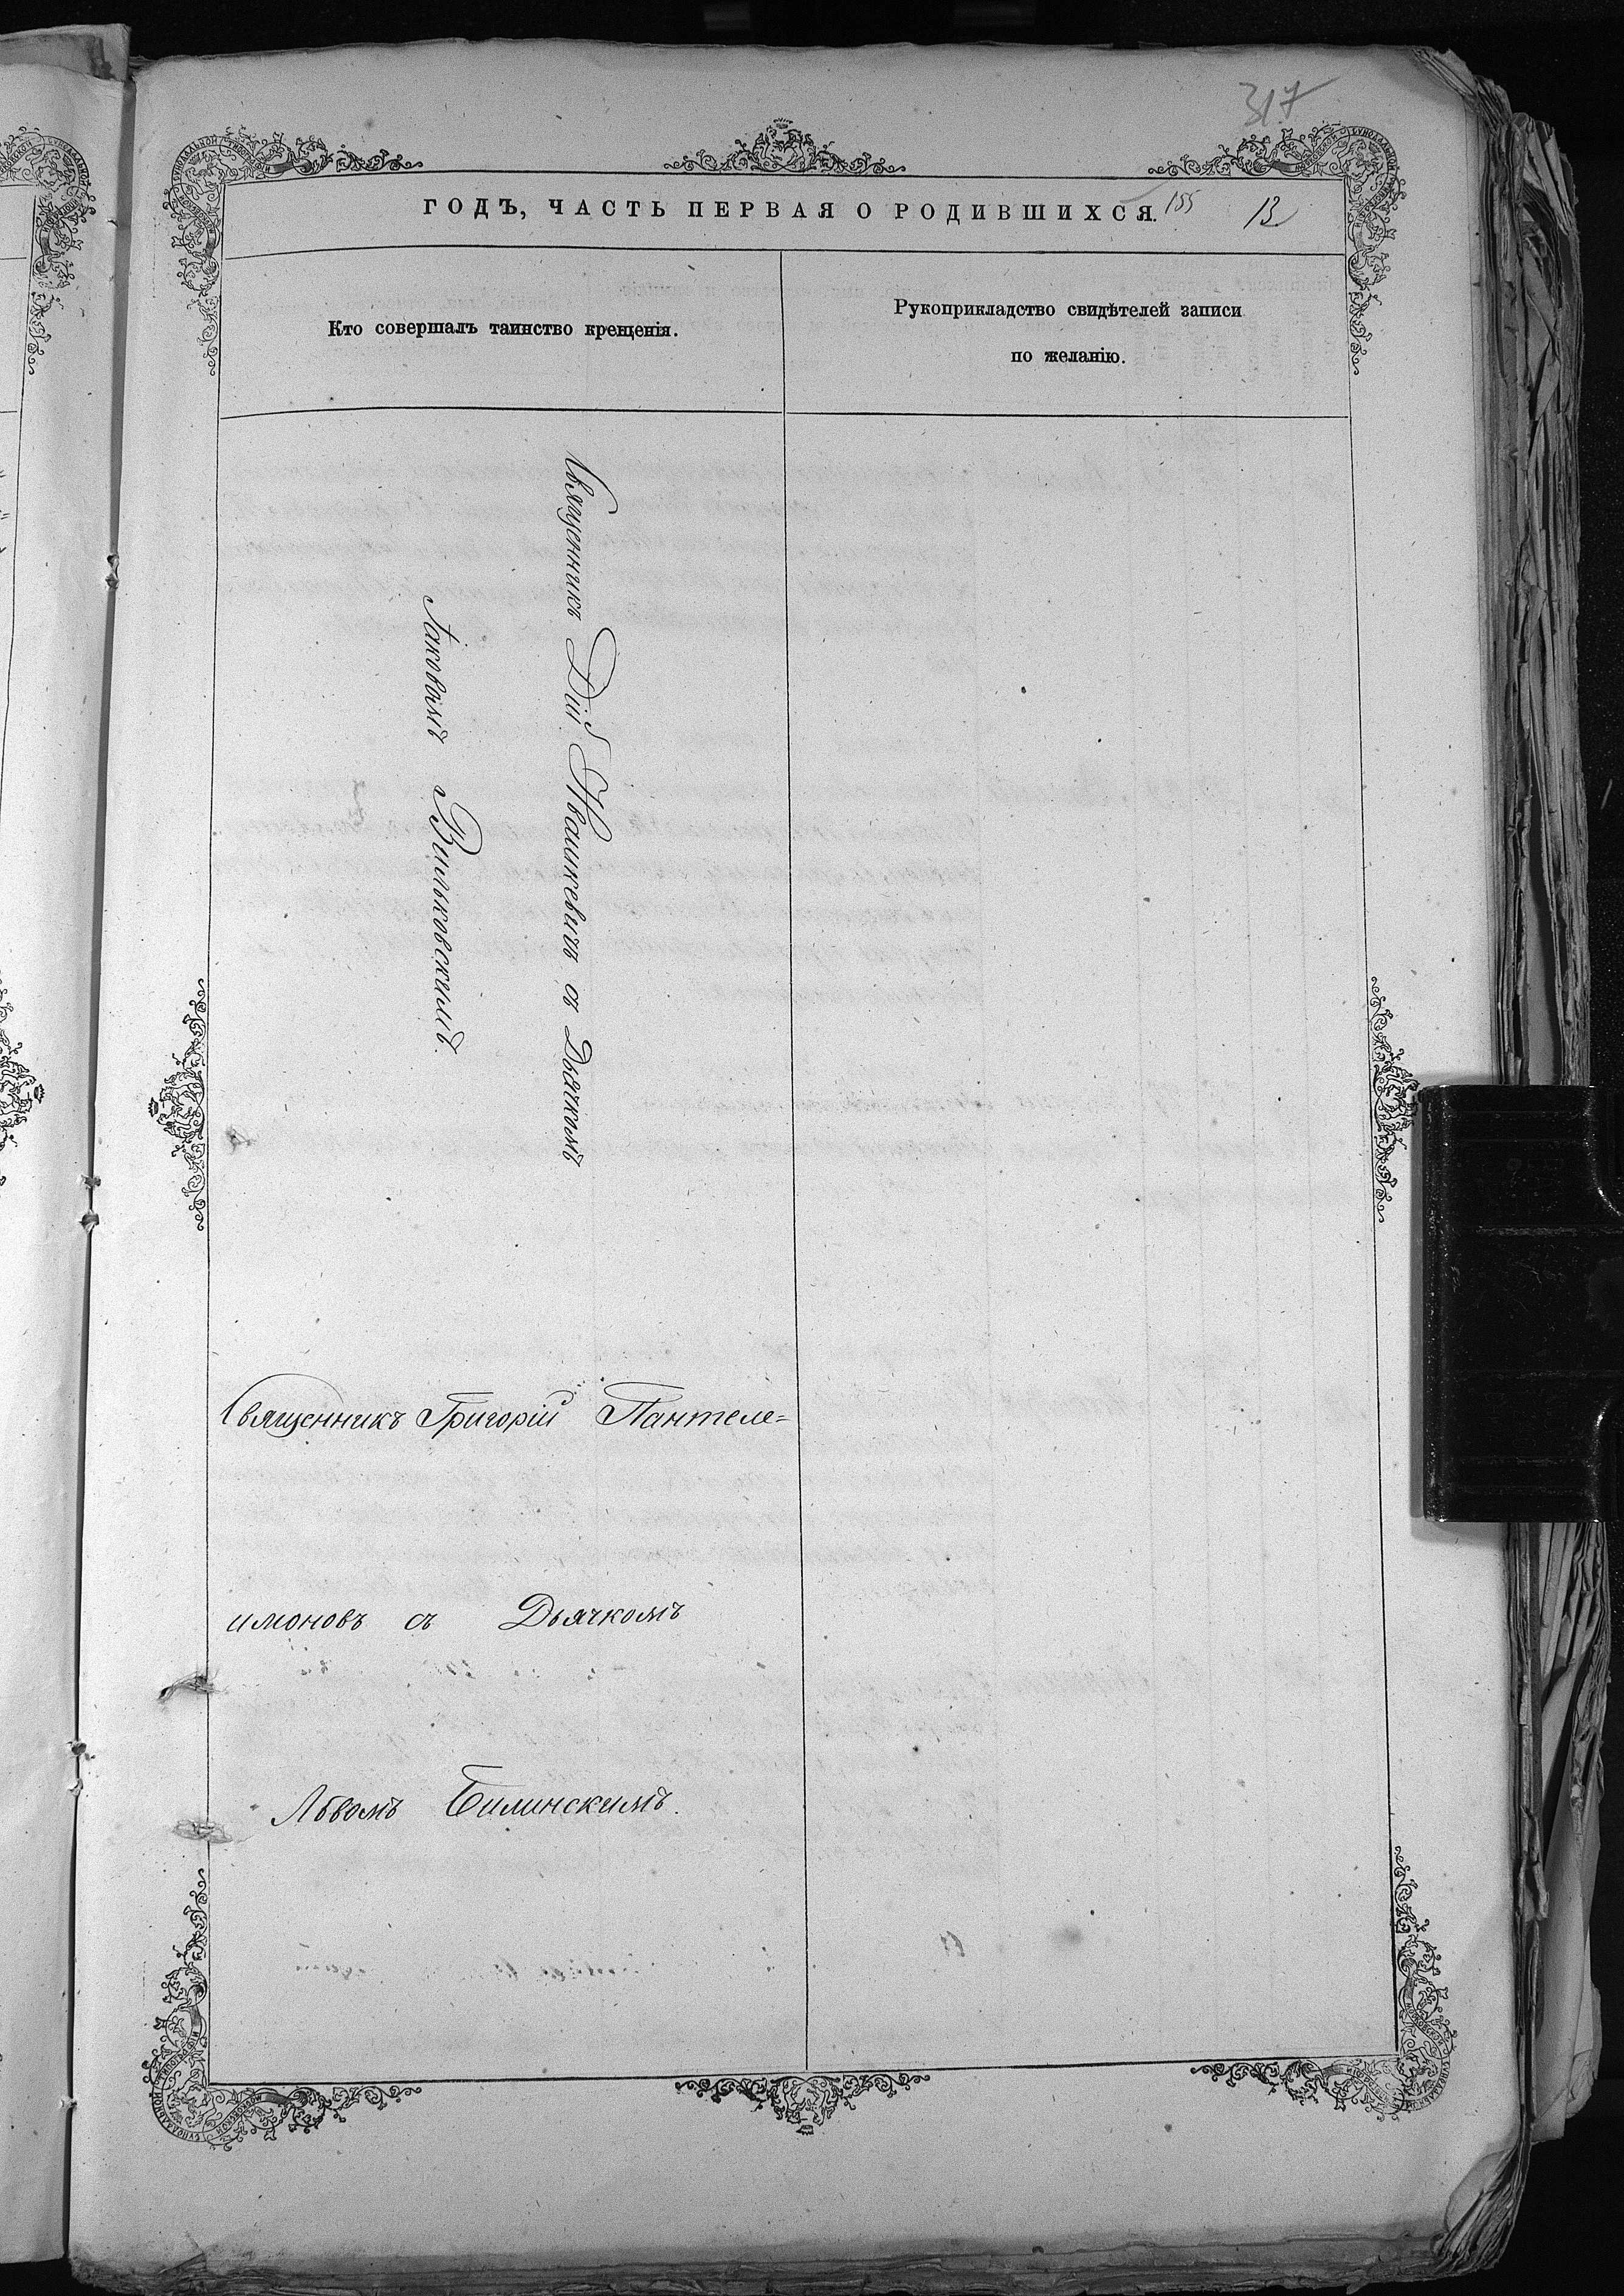 317
ГОДЪ, ЧАСТЬ ПЕРВАЯ О РОДИВШИХСЯ.
155
13
Кто совершалъ таинство крещенія.
Рукоприкладство свидѣтелей записи
по желанію.
Священникъ Дій Ивашкевичъ съ Дьячкомъ
Яковомъ Вильковскимъ.
Священникъ Григорій Пантеле=
имоновъ съ Дьячкомъ
Львомъ Билинскимъ.